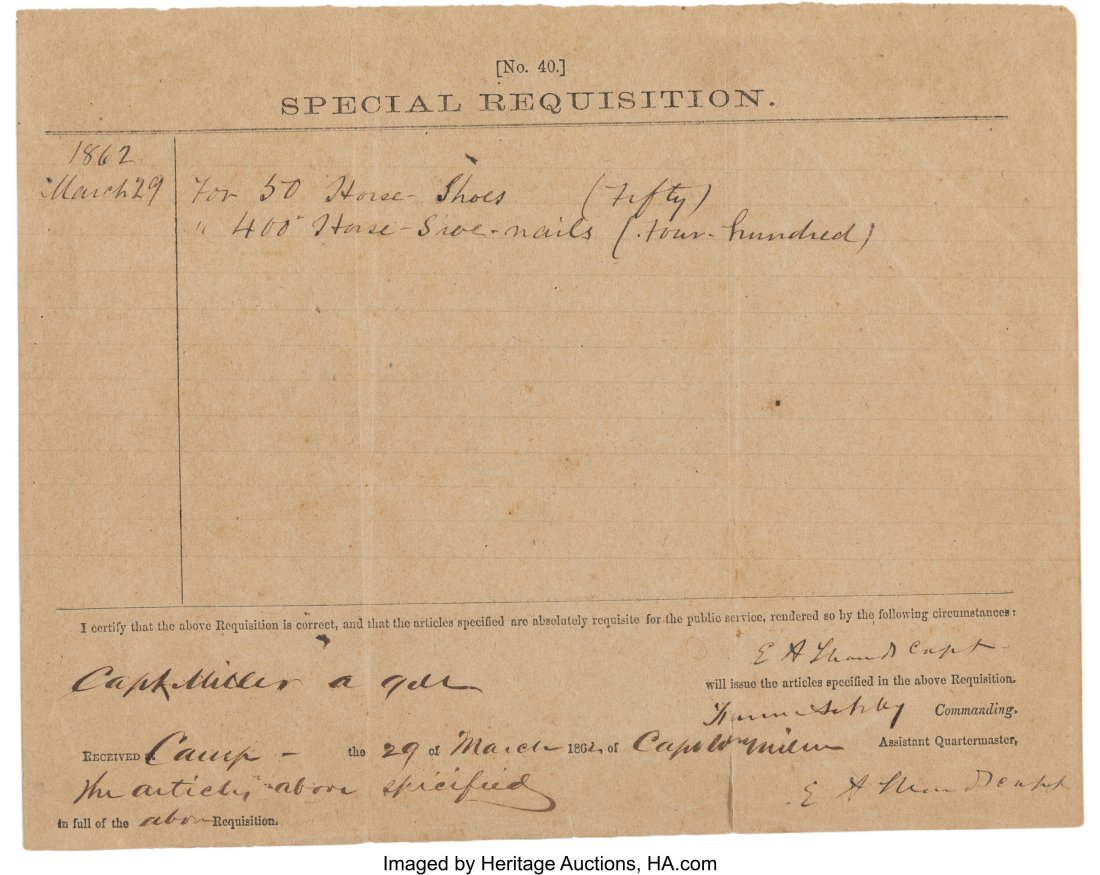 [No. 40.]
SPECIAL REQUISITION.
1862
March 29 For 50 Horse-Shoes (Fifty)
" 400 Horse-Shoe-nails (four-hundred)
I certify that the above Requisition is correct, and that the articles specified are absolutely requisite for the public service, rendered so by the following circumstances:
E A Shands Capt
Capt Miller a qm
will issue the articles specified in the above Requisition.
Turner Ashby Commanding.
RECEIVED Camp - the 29 of March 1862, of Capt Wm Miller Assistant Quartermaster,
the articles above specified
E A Shands capt
in full of the above Requisition.
Imaged by Heritage Auctions, HA.com